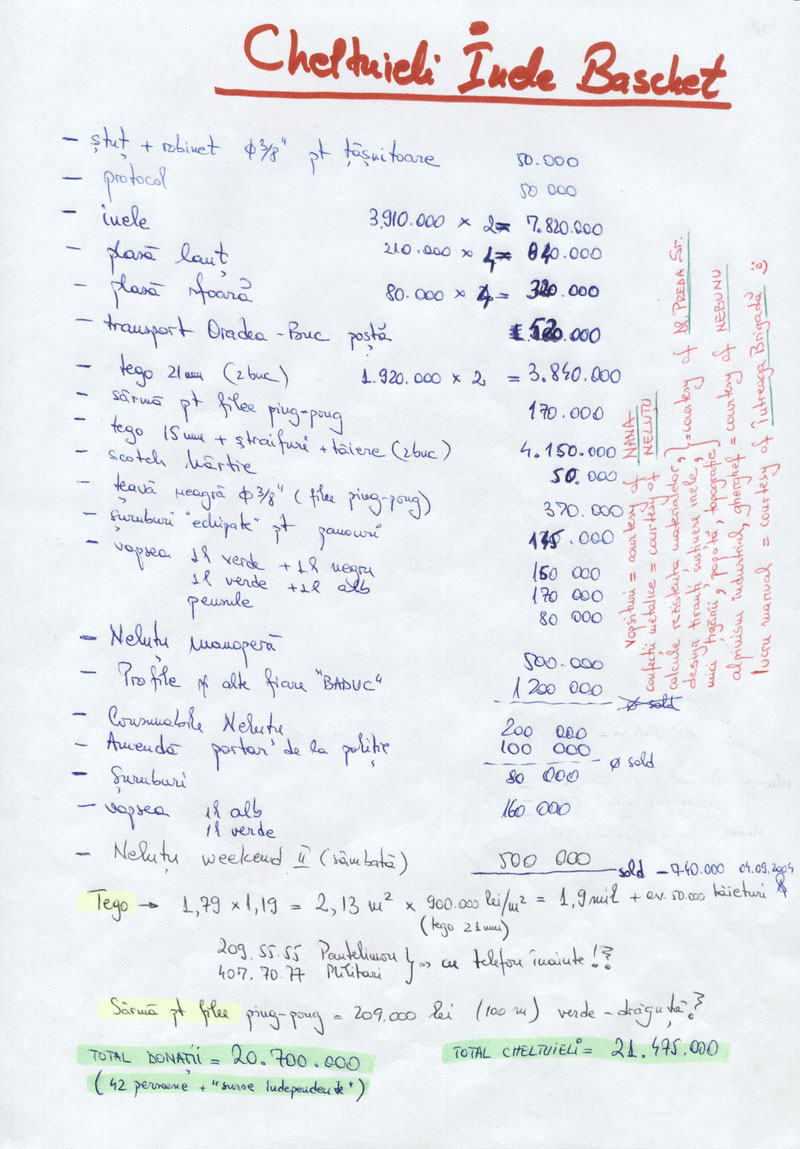 Cheltuieli Inele Baschet
- ștuț + robinet Φ 3/8" pt țâșnitoare 50.000
- protocol 50 000
- inele 3.910.000 × 2 = 7.820.000
- plasă lanț 210.000 × 4 = 840.000
- plasă sfoară 80.000 × 4 = 320.000
- transport Oradea-Buc poștă
- tego 21mm (2buc) 1.920.000 × 2 = 3.840.000
- sârmă pt filee ping-pong 170.000
- tego 15mm + ștraifuri + tăiere (2buc) 4.150.000
- scotch hârtie 50.000
- țeavă neagră Φ 3/8" (filee ping-pong) 370.000
- șuruburi "echipate" pt panouri .000
- vopsea 1l verde + 1l negru 150 000
1l verde + 1l alb 170 000
pensule 80 000
- Neluțu manoperă 500.000
- Profile și alte fiare "BADUC" 1 200 000
ø sold
- Consumabile Neluțu 200 000
- Amendă portar de la poliție 100 000
ø sold
- Șuruburi 80 000
- vopsea 1l alb 160 000
1l verde
- Neluțu weekend II (sâmbătă) 500 000
sold - 740.000 04.09.2004
Tego → 1,79 × 1,19 = 2,13 m² × 900.000 lei/m² = 1,9 mil + ev. 50.000 tăieturi
(tego 21mm)
209.55.55 Pantelimon
407.70.77 Militari } => cu telefon înainte !?
Sârmă pt filee ping-pong = 209.000 lei (100 m) verde-drăguță?
TOTAL DONAȚII = 20.700.000 TOTAL CHELTUIELI = 21.475.000
(42 persoane + "surse independente")
vopsituri = courtesy of NANA
confecții metalice = courtesy of NELUȚU
calcule rezistența materialelor,
design tiranți susținere inele, } = courtesy of DR. PREDA ST.
mici țigănii, popotă, topografie
alpinism industrial, gherghef = courtesy of NEBUNU
lucru manual = courtesy of Întreaga Brigadă :)